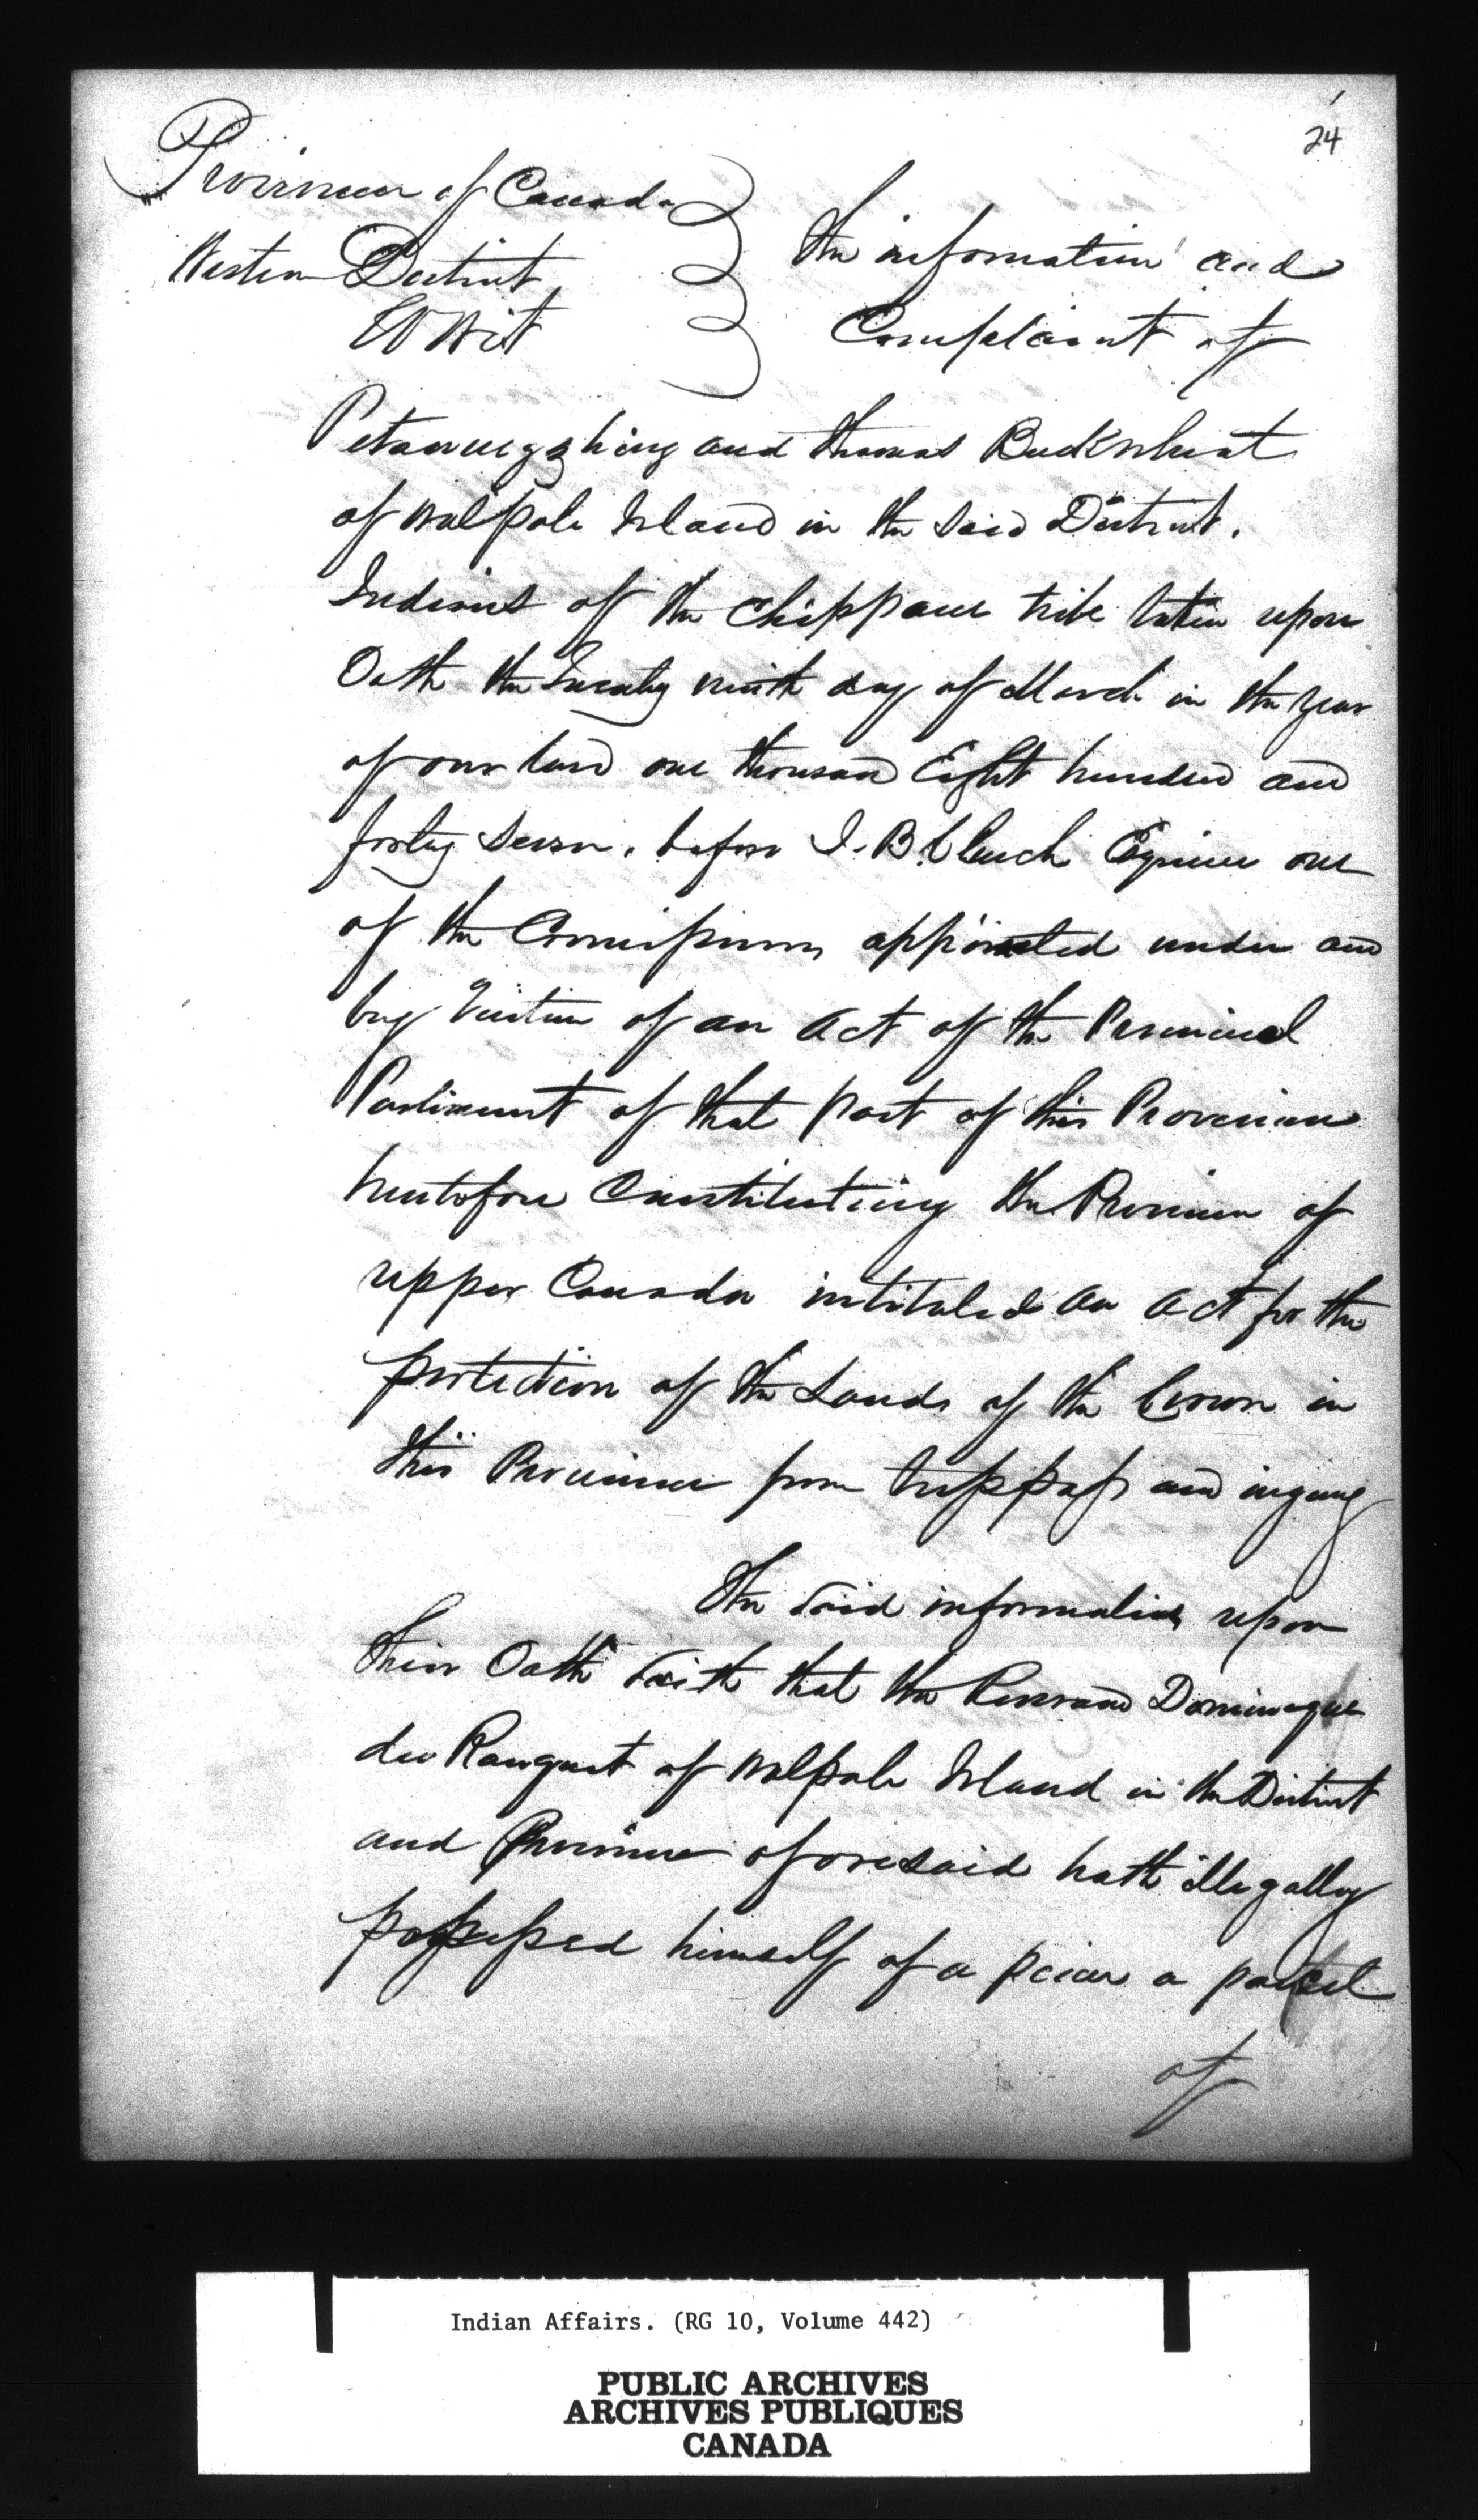 24
Province of Canada
Western District
To Wit
The information and
Complaint of
and Thomas Buckwheat
of Walpole Island in the said District.
Indians of the Chippawe tribe taken upon
Oath the Twenty ninth day of March in the year
of our Lord one thousand Eight hundred and
forty seven. before J. B. Clench Esquire one
of the Commissioners appointed under and
by Virtue of an Act of the Provincial
Parliament of that part of this Province
heretofore Constituting the Province of
upper Canada intituled an Act for the
protection of the Lands of the Crown in
this Province from trespass and injury
The said informants upon
their Oath saith that the Reverand Dominique
du Ranquet of Walpole Island in the District
and Province aforesaid hath illegally
possessed himself of a peice a parcel
of
Indian Affairs. (RG 10, Volume 442)
PUBLIC ARCHIVES
ARCHIVES PUBLIQUES
CANADA